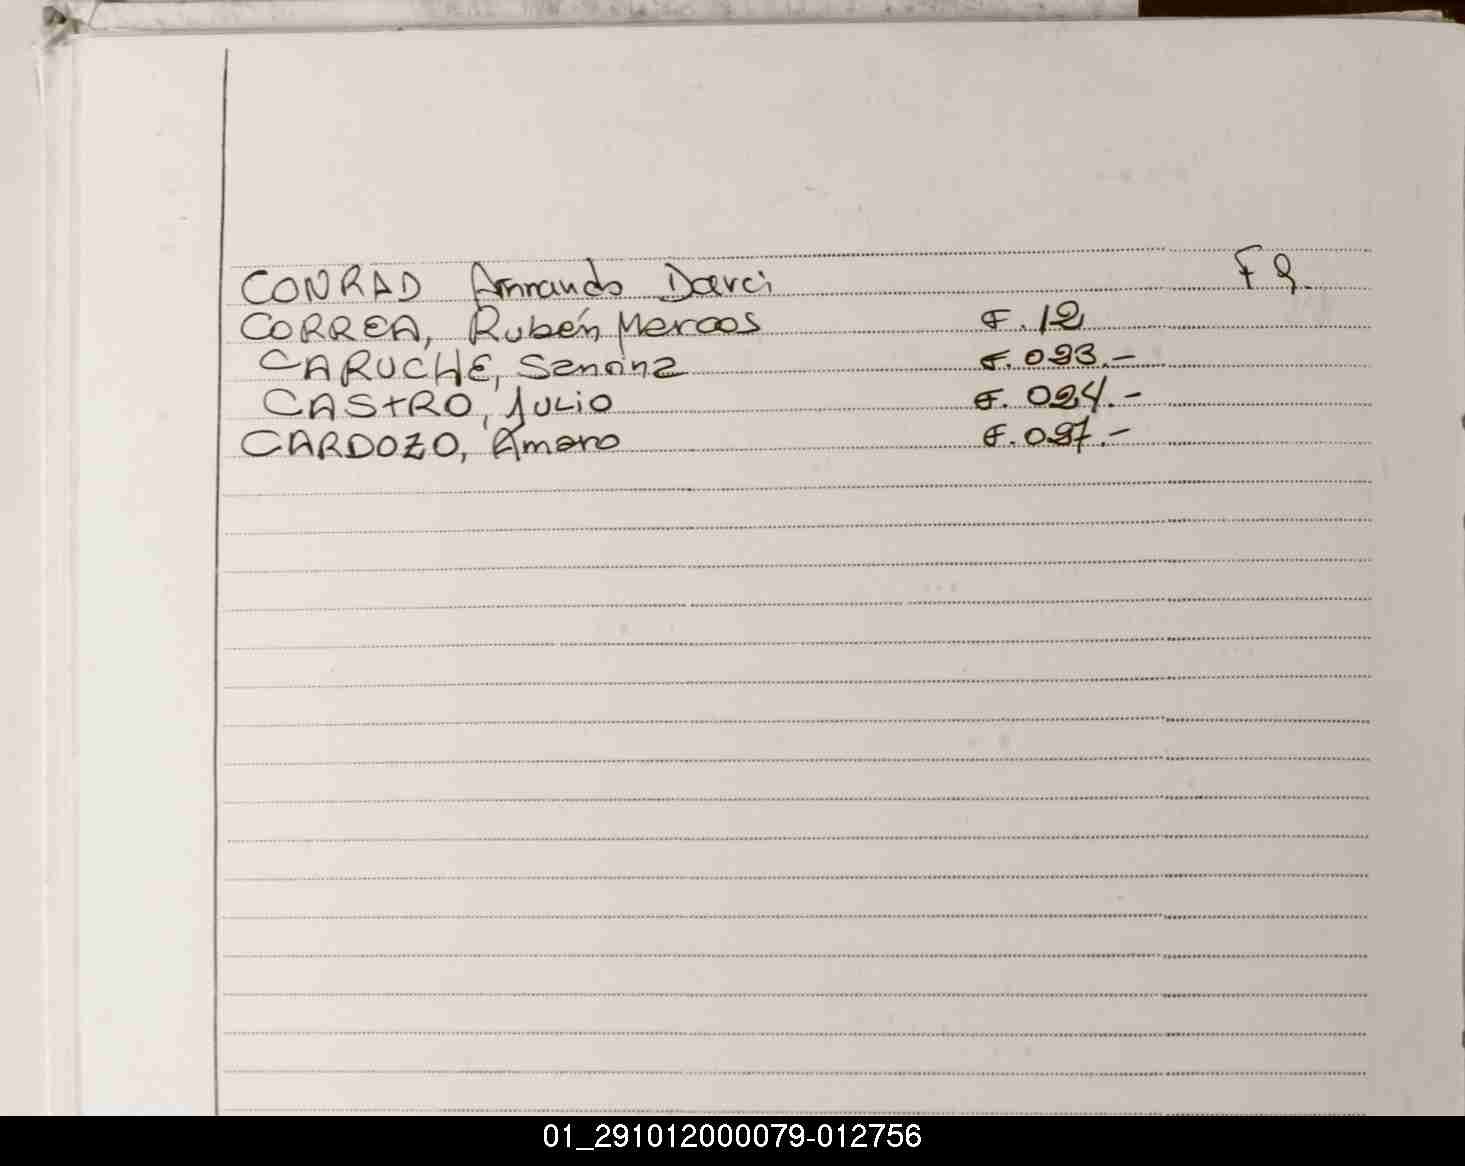 CONRAD Armando Darci F 9.
CORREA, Rubén Marcos F. 12
CARUCHE, F. 023.-
CASTRO, JULIO F. 024.-
CARDOZO, Amaro F. 027.-
01_291012000079-012756